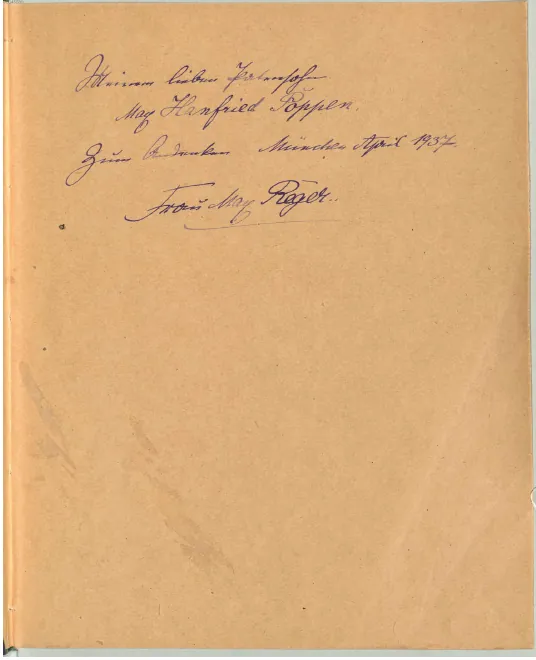 Meinem lieben Patensohn
Max Hanfried Poppen.
Zum Andenken München April 1937.
Frau Max Reger.